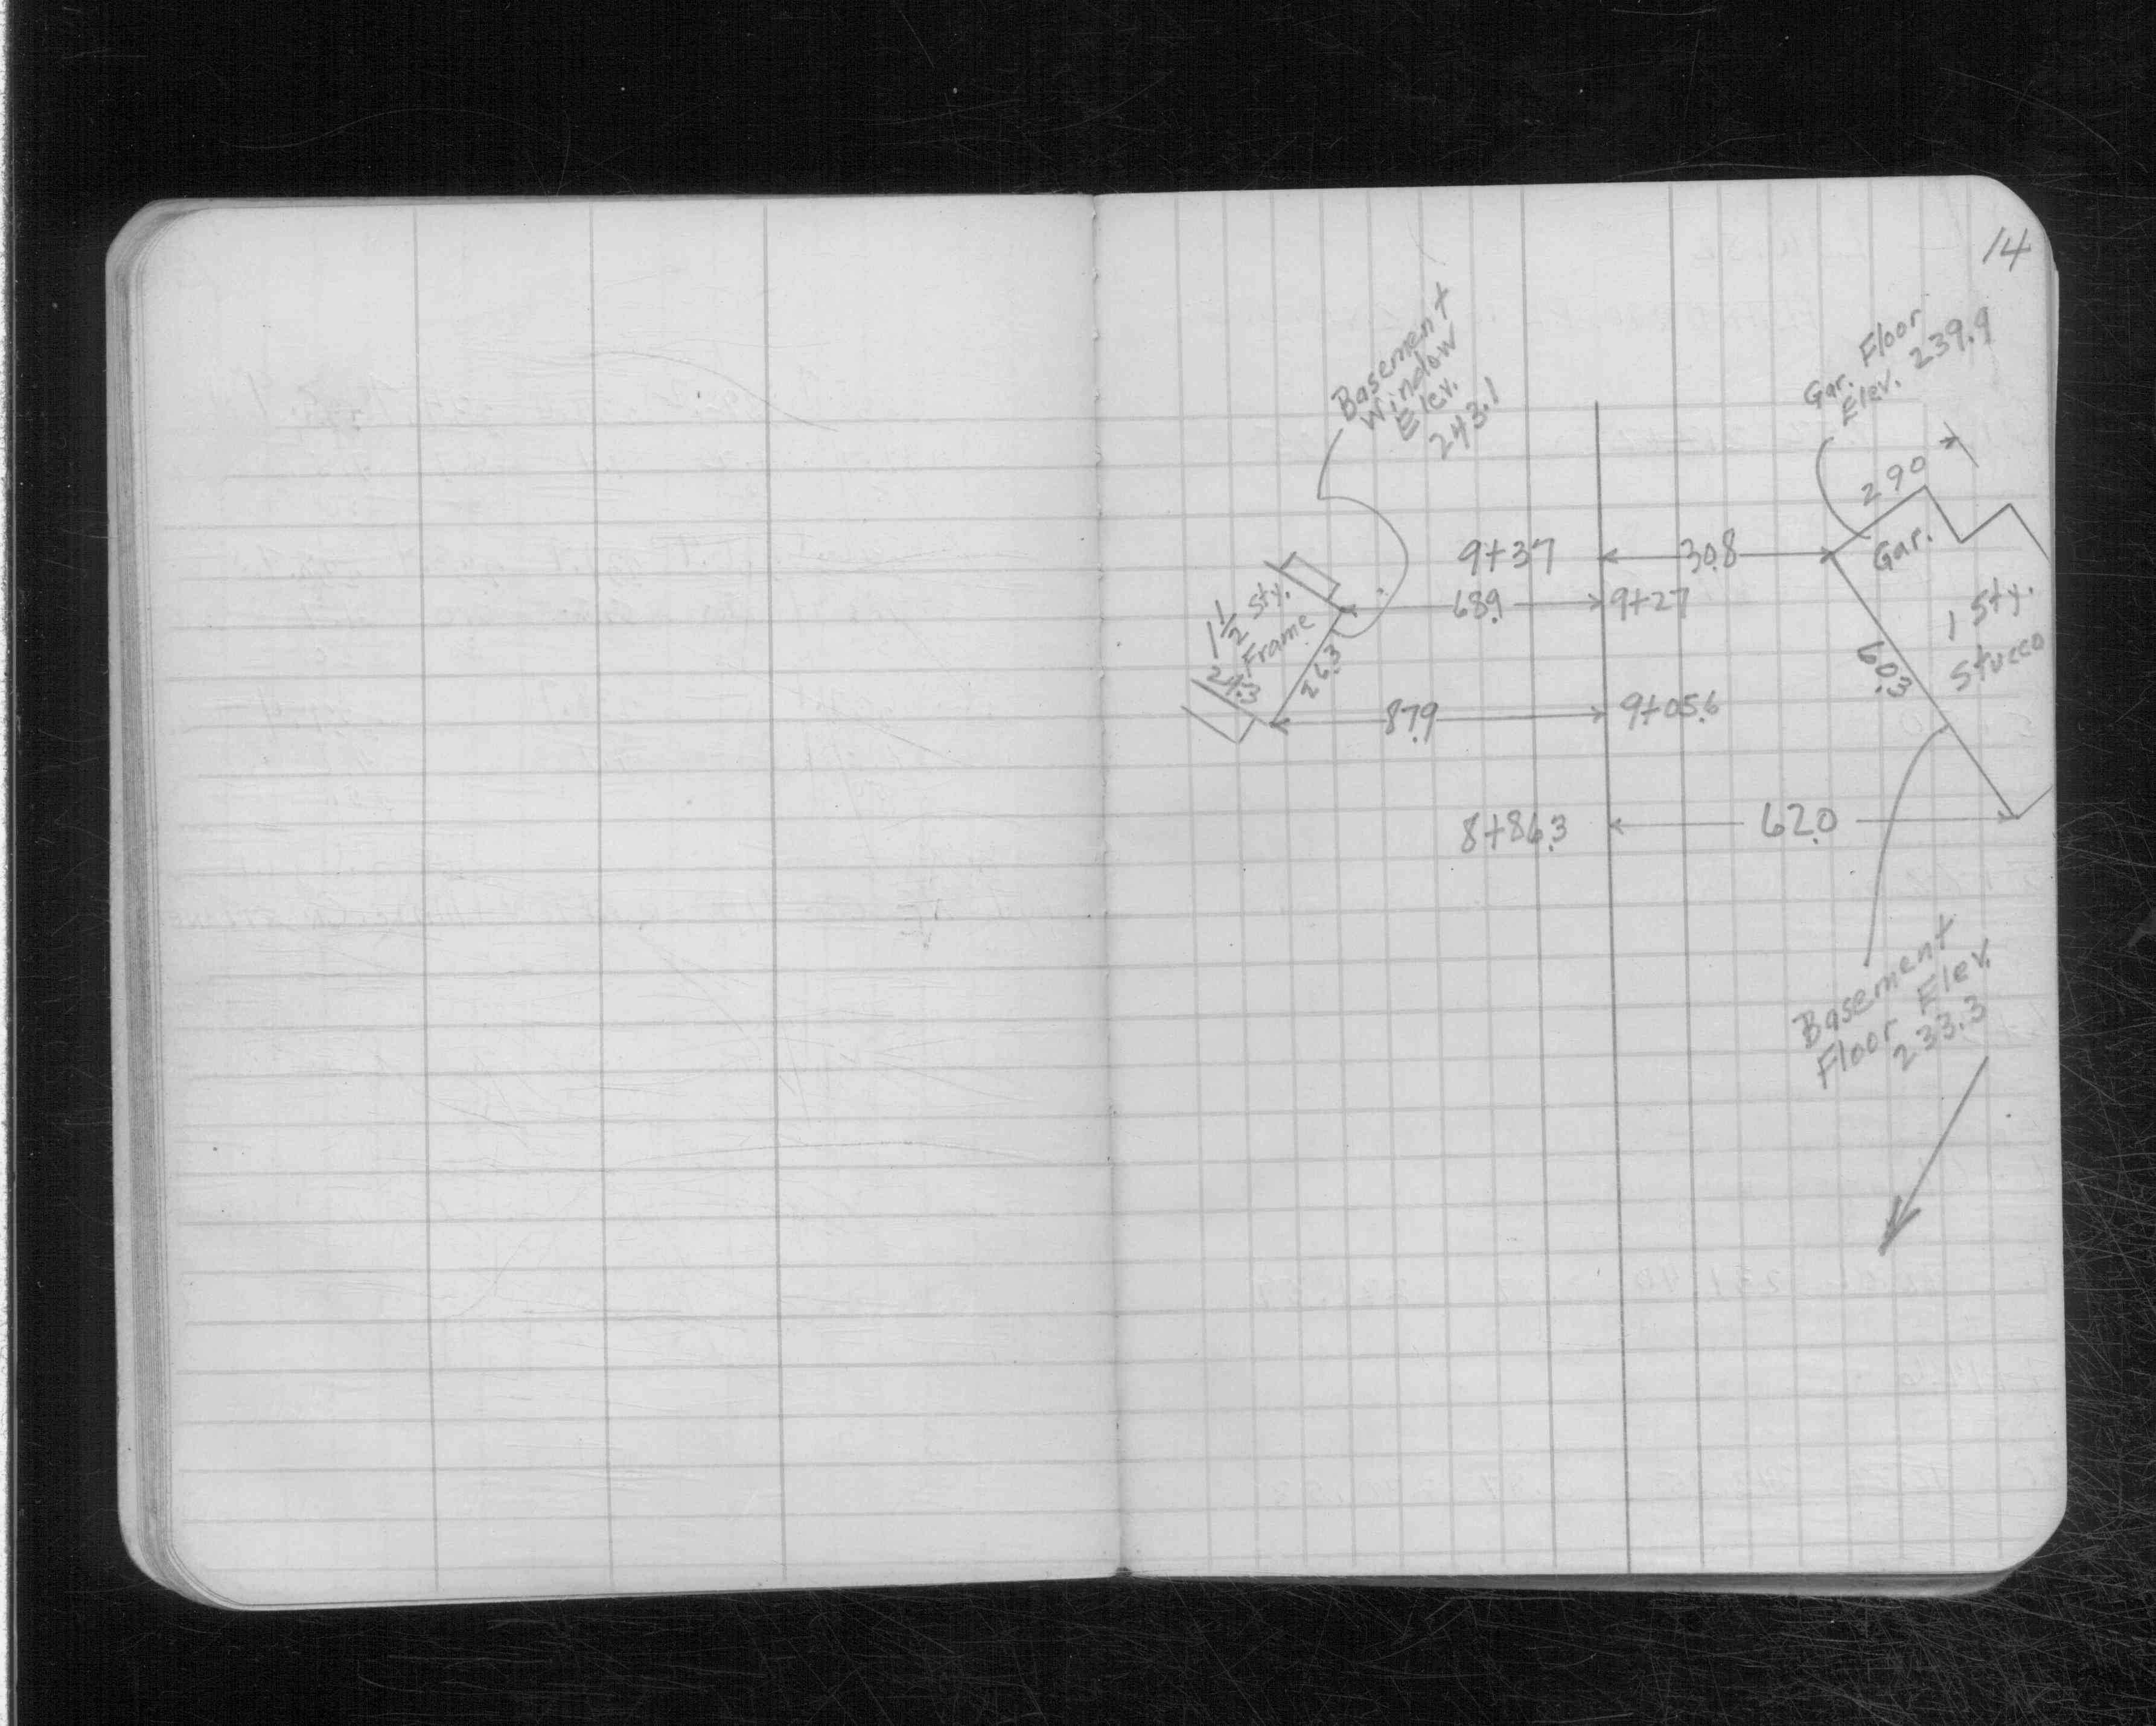 14
Basement
Window
Elev.
243.1
Gar. Floor
Elev. 239.9
290
9+37
30.8
Gar.
1 1/2 Sty.
Frame
68.9
9+27
1 Sty.
Stucco
24.3
26.3
60.3
87.9
9+05.6
8+86.3
62.0
Basement
Floor Elev.
233.3